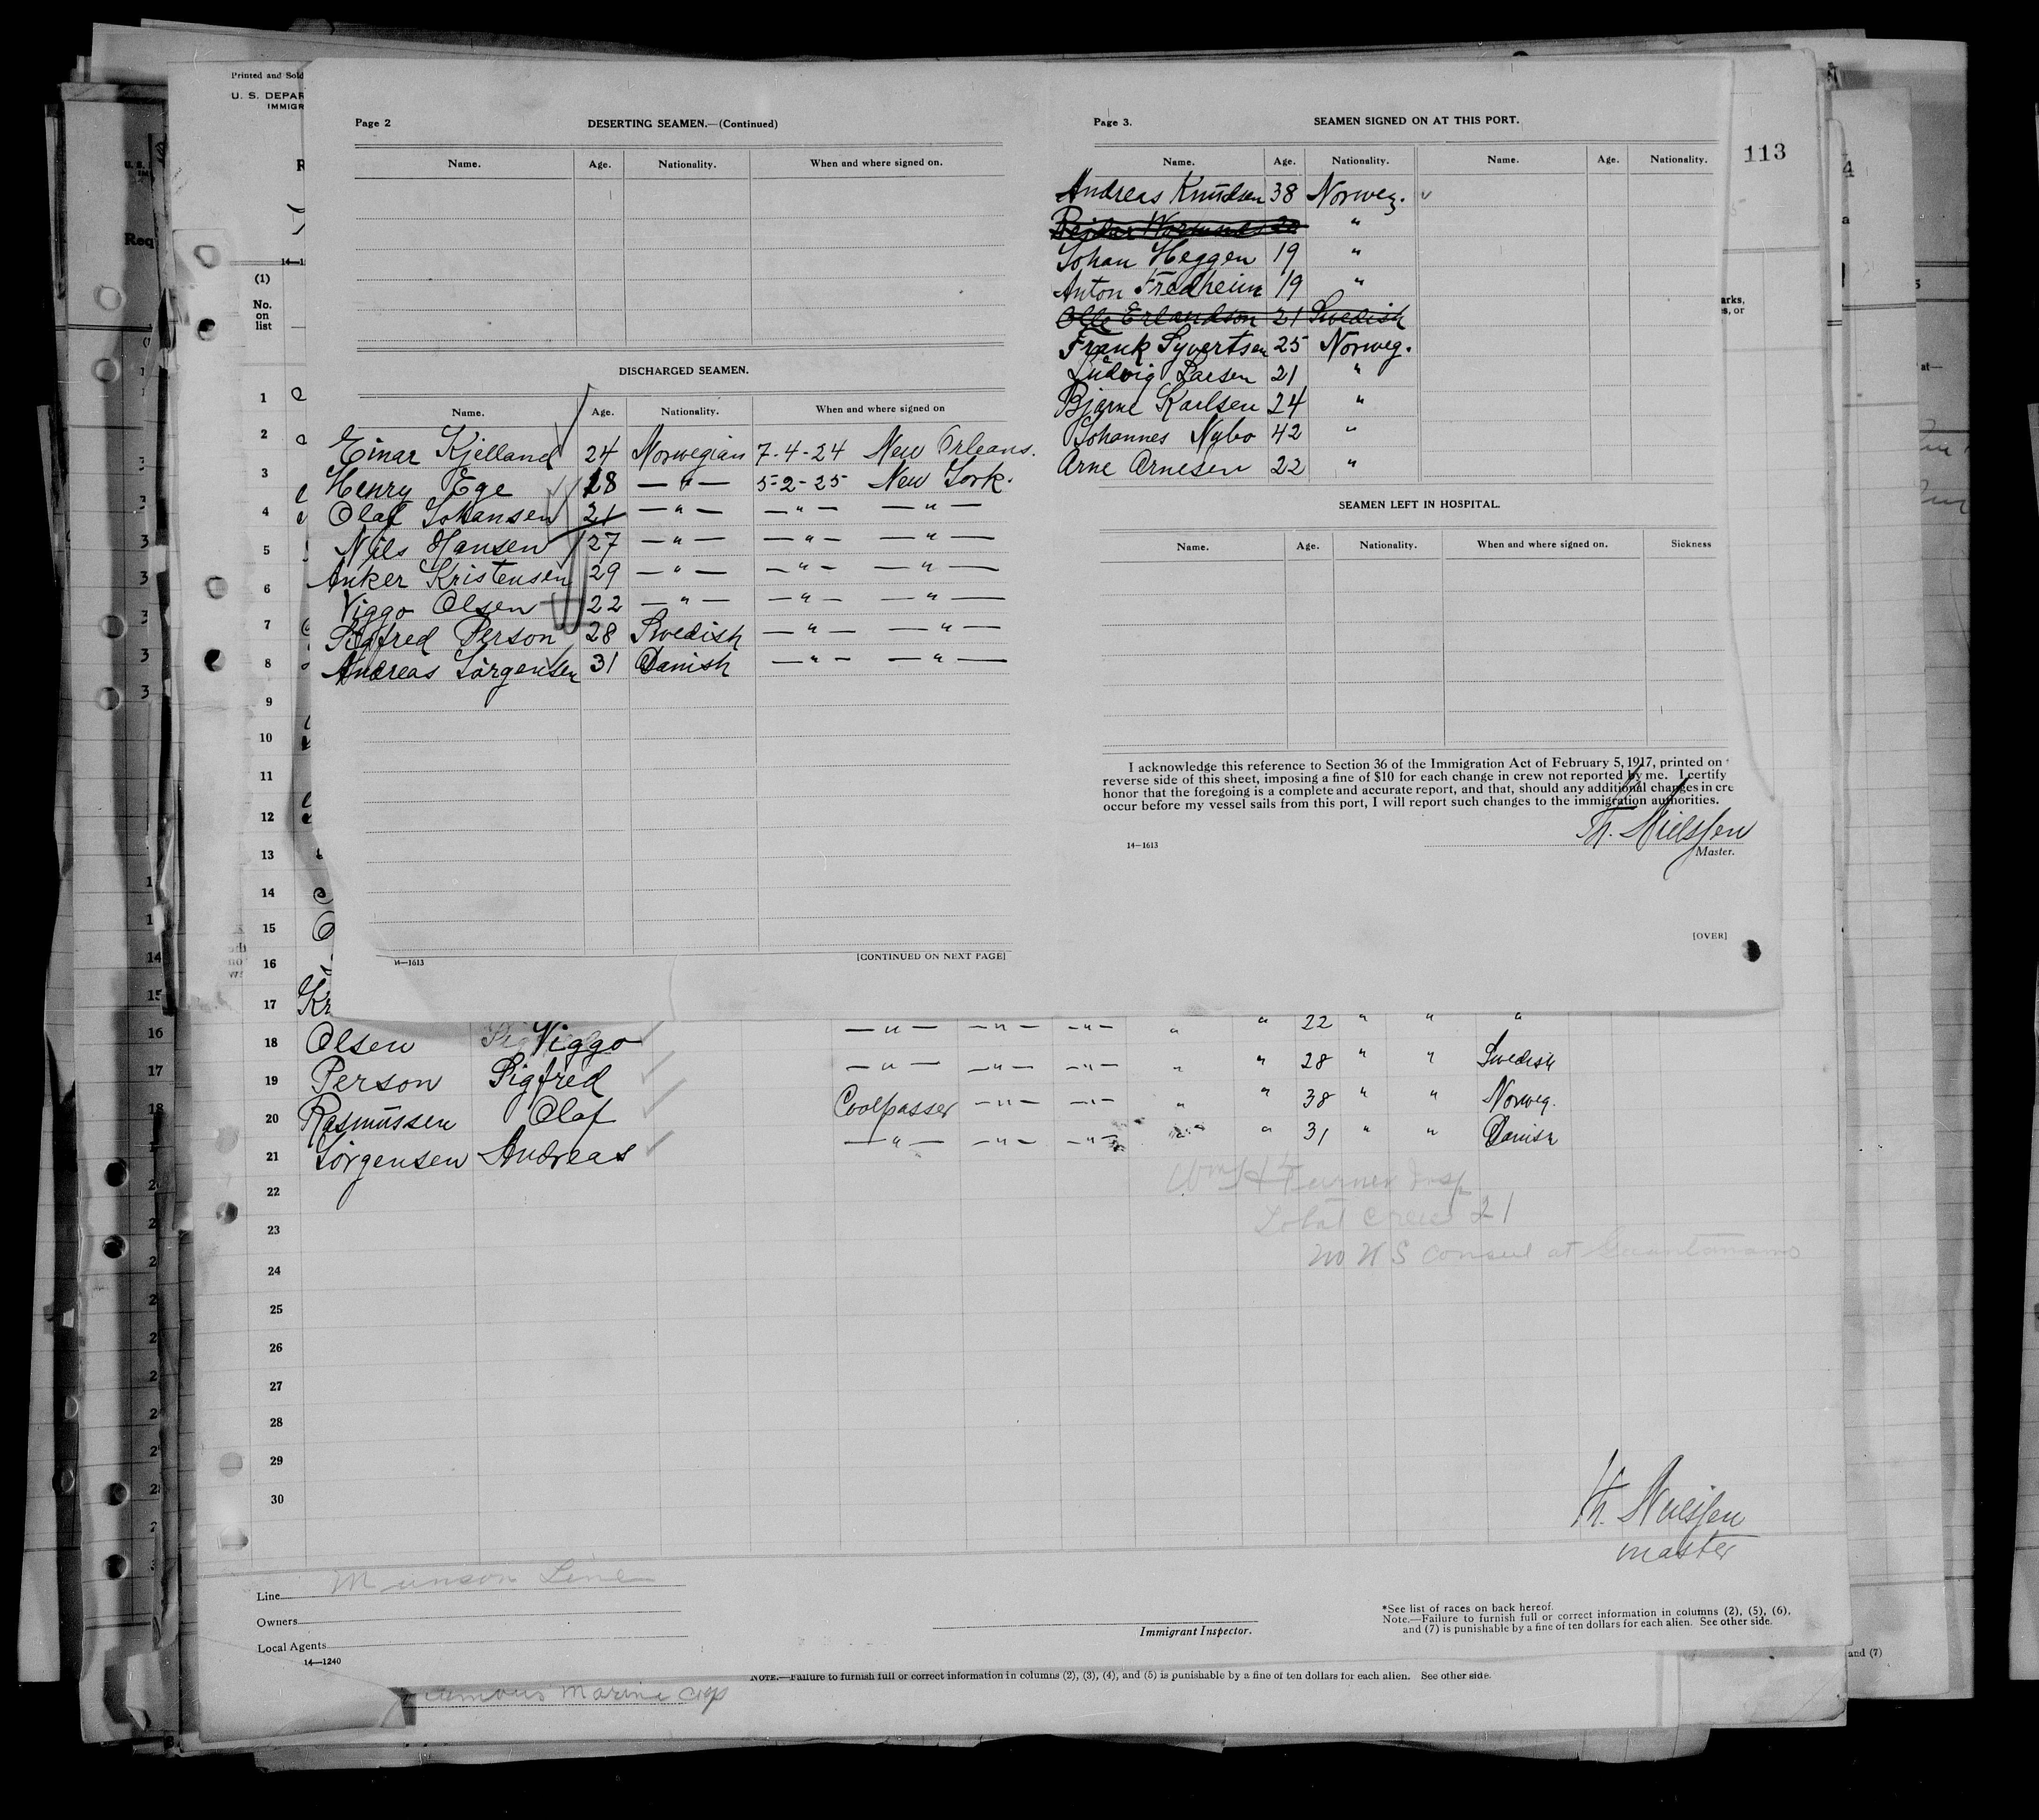 Printed and Sold
U. S. DEPAR
IMMIGR
Page 2
DESERTING SEAMEN.—(Continued)
Name. Age. Nationality. When and where signed on.
DISCHARGED SEAMEN.
Name. Age. Nationality. When and where signed on
Einar Kjelland 24 Norwegian 7-4-24 New Orleans.
Henry Ege 18 —"— 5-2-25 New York.
Olaf Johansen 21 —"— —"— —"—
Nils Hansen 27 —"— —"— —"—
Anker Kristensen 29 —"— —"— —"—
Viggo Olsen 22 —"— —"— —"—
Sigfred Person 28 Swedish —"— —"—
Andreas Sörgensen 31 Danish —"— —"—
14—1613
[CONTINUED ON NEXT PAGE]
Page 3.
SEAMEN SIGNED ON AT THIS PORT.
Name. Age. Nationality. Name. Age. Nationality.
113
Andreas Knudsen 38 Norweg.
"
Johan Heggen 19 "
Anton Fredheim 19 "
Olle Erlandson 21 Swedish
Frank Syvertsen 25 Norweg.
Ludvig Larsen 21 "
Bjarne Karlsen 24 "
Johannes Nybo 42 "
Arne Arnesen 22 "
SEAMEN LEFT IN HOSPITAL.
Name. Age. Nationality. When and where signed on. Sickness
I acknowledge this reference to Section 36 of the Immigration Act of February 5, 1917, printed on
reverse side of this sheet, imposing a fine of $10 for each change in crew not reported by me. I certify
honor that the foregoing is a complete and accurate report, and that, should any additional changes in cre
occur before my vessel sails from this port, I will report such changes to the immigration authorities.
Th. Nielssen
14—1613
Master.
[OVER]
(1)
No.
on
list
1
2
3
4
5
6
7
8
9
10
11
12
13
14
15
16
17 Kr
" 22 " " "
18 Olsen Viggo —"— —"— —"— " " 28 " " Swedish
19 Person Sigfred
20 Rasmussen Olaf Coolpasser —"— —"— " " 38 " " Norweg.
21 Sörgensen Andreas —"— —"— —"— " " 31 " " Danish
22 Wm H Turner Insp
23 Total Crew 21
24 no U S Consul at Guantanamo
25
26
27
28
29
30
Th. Nielssen
master
Line Munson Line
Owners
Local Agents
14—1240
Immigrant Inspector.
*See list of races on back hereof.
Note.—Failure to furnish full or correct information in columns (2), (5), (6),
and (7) is punishable by a fine of ten dollars for each alien. See other side.
and (7)
NOTE.—Failure to furnish full or correct information in columns (2), (3), (4), and (5) is punishable by a fine of ten dollars for each alien. See other side.
Marine Corp